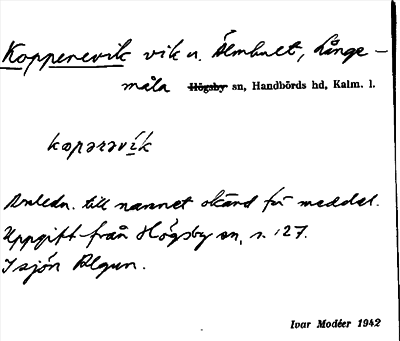 Kopperevik vik u. Älmhult, Långe-
måla Högsby sn, Handbörds hd, Kalm. l.
kɷpərəvík
Anledn. till namnet okänd för meddel.
Uppgift från Högsby sn, s. 127.
I sjön Algun.
Ivar Modéer 1942